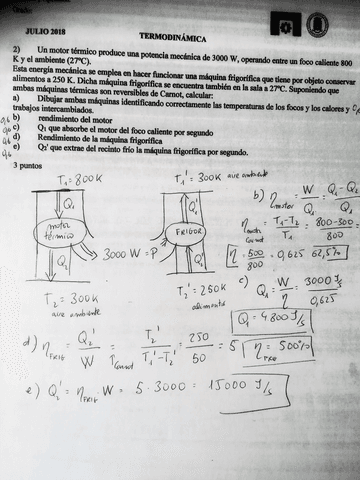 JULIO 2018
TERMODINÁMICA
2) Un motor térmico produce una potencia mecánica de 3000 W, operando entre un foco caliente 800
K y el ambiente (27ºC).
Esta energía mecánica se emplea en hacer funcionar una máquina frigorífica que tiene por objeto conservar
alimentos a 250 K. Dicha máquina frigorífica se encuentra también en la sala a 27ºC. Suponiendo que
ambas máquinas térmicas son reversibles de Carnot, calcular:
a) Dibujar ambas máquinas identificando correctamente las temperaturas de los focos y los calores y
trabajos intercambiados.
b) rendimiento del motor
c) Q1 que absorbe el motor del foco caliente por segundo
d) Rendimiento de la máquina frigorífica
e) Q2' que extrae del recinto frío la máquina frigorífica por segundo.
3 puntos
T1 = 800K
T1' = 300K aire ambiente
Q1
Q1'
motor térmico
3000 W = P
FRIGOR
Q2
T2 = 300K
aire ambiente
T2' = 250K
alimentos
b) η motor = W / Q1 = Q1 - Q2 / Q1
η motor Carnot = T1 - T2 / T1 = 800 - 300 / 800
η = 500 / 800 = 0,625 62,5%
c) Q1 = W / η = 3000 J/s / 0,625
Q1 = 4.800 J/s
d) η FRIG = Q2' / W = Carnot T2' / T1' - T2' = 250 / 50 = 5 η FRIG = 500%
e) Q2' = η FRIG W = 5 · 3000 = 15000 J/s